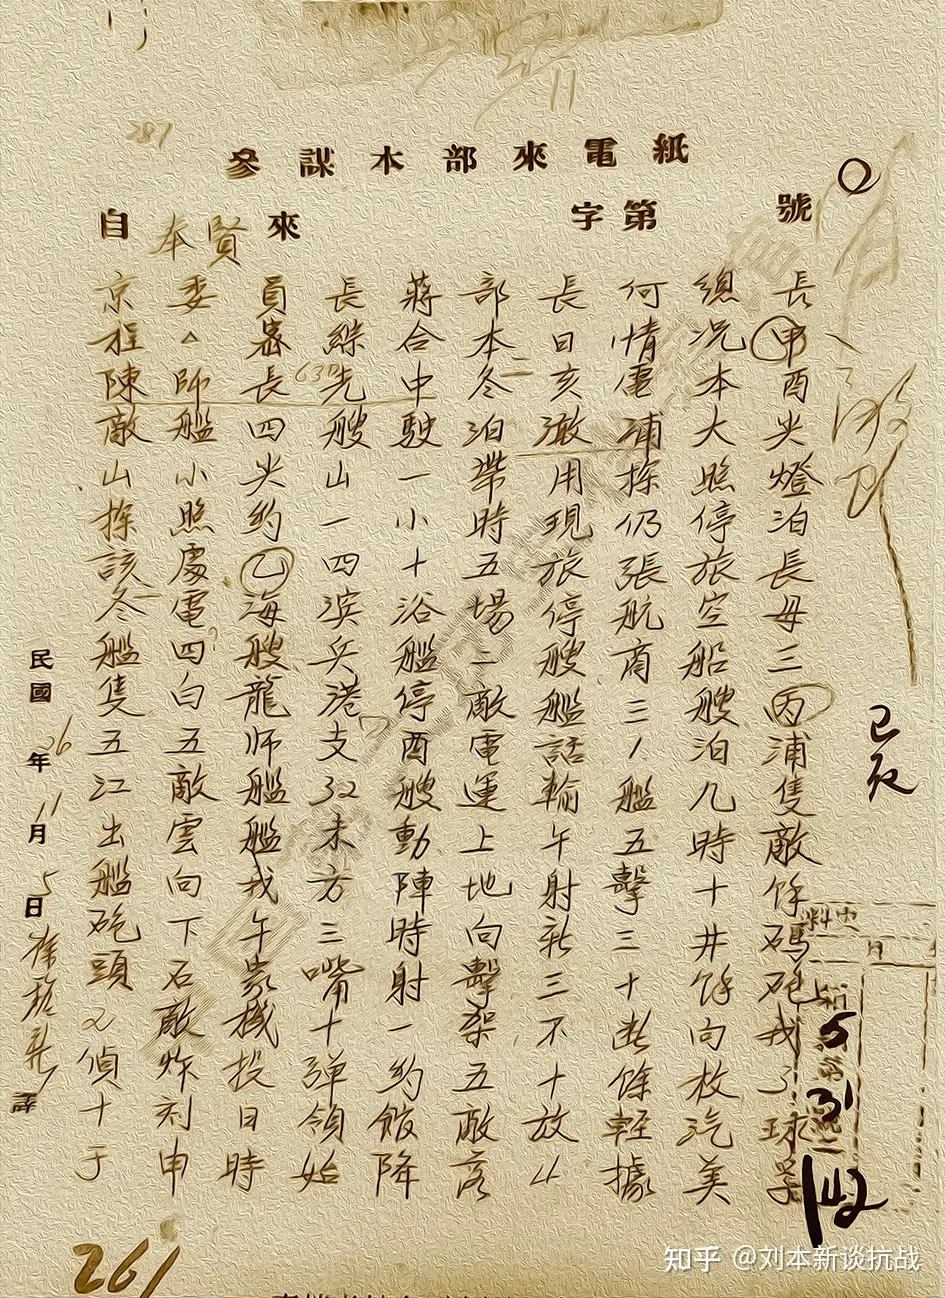 參謀本部來電紙
自奉賢來 字第 號
京委員長蔣部長何總長
程△密綜合本日情况甲
陳師長先中冬亥電本酉
敵艦四艘駛泊澉浦大尖
山小尖山一帶用探照燈
探照約一小時現仍停泊
該處乙四十五旅張旅長
冬電海濱浴場停航空母
艦四艘兵艦二艘商船三
隻白龍港停敵艦三艘丙
五五師支酉電話泊浦
江敵艦32艘運輸艦九隻
出雲艦未動上午五時敵
艦向我方陣地射擊十餘
砲下午三時向新三井碼
頭石家嘴射擊三十餘砲
敵機十一架不此向我
偵炸投彈約五十餘枚
十刻日領館敵放輕汽球
于申時始降落據美
民國26年11月5日 譯
287
630
已辰
5
31
142
261
知乎 @刘本新谈抗战